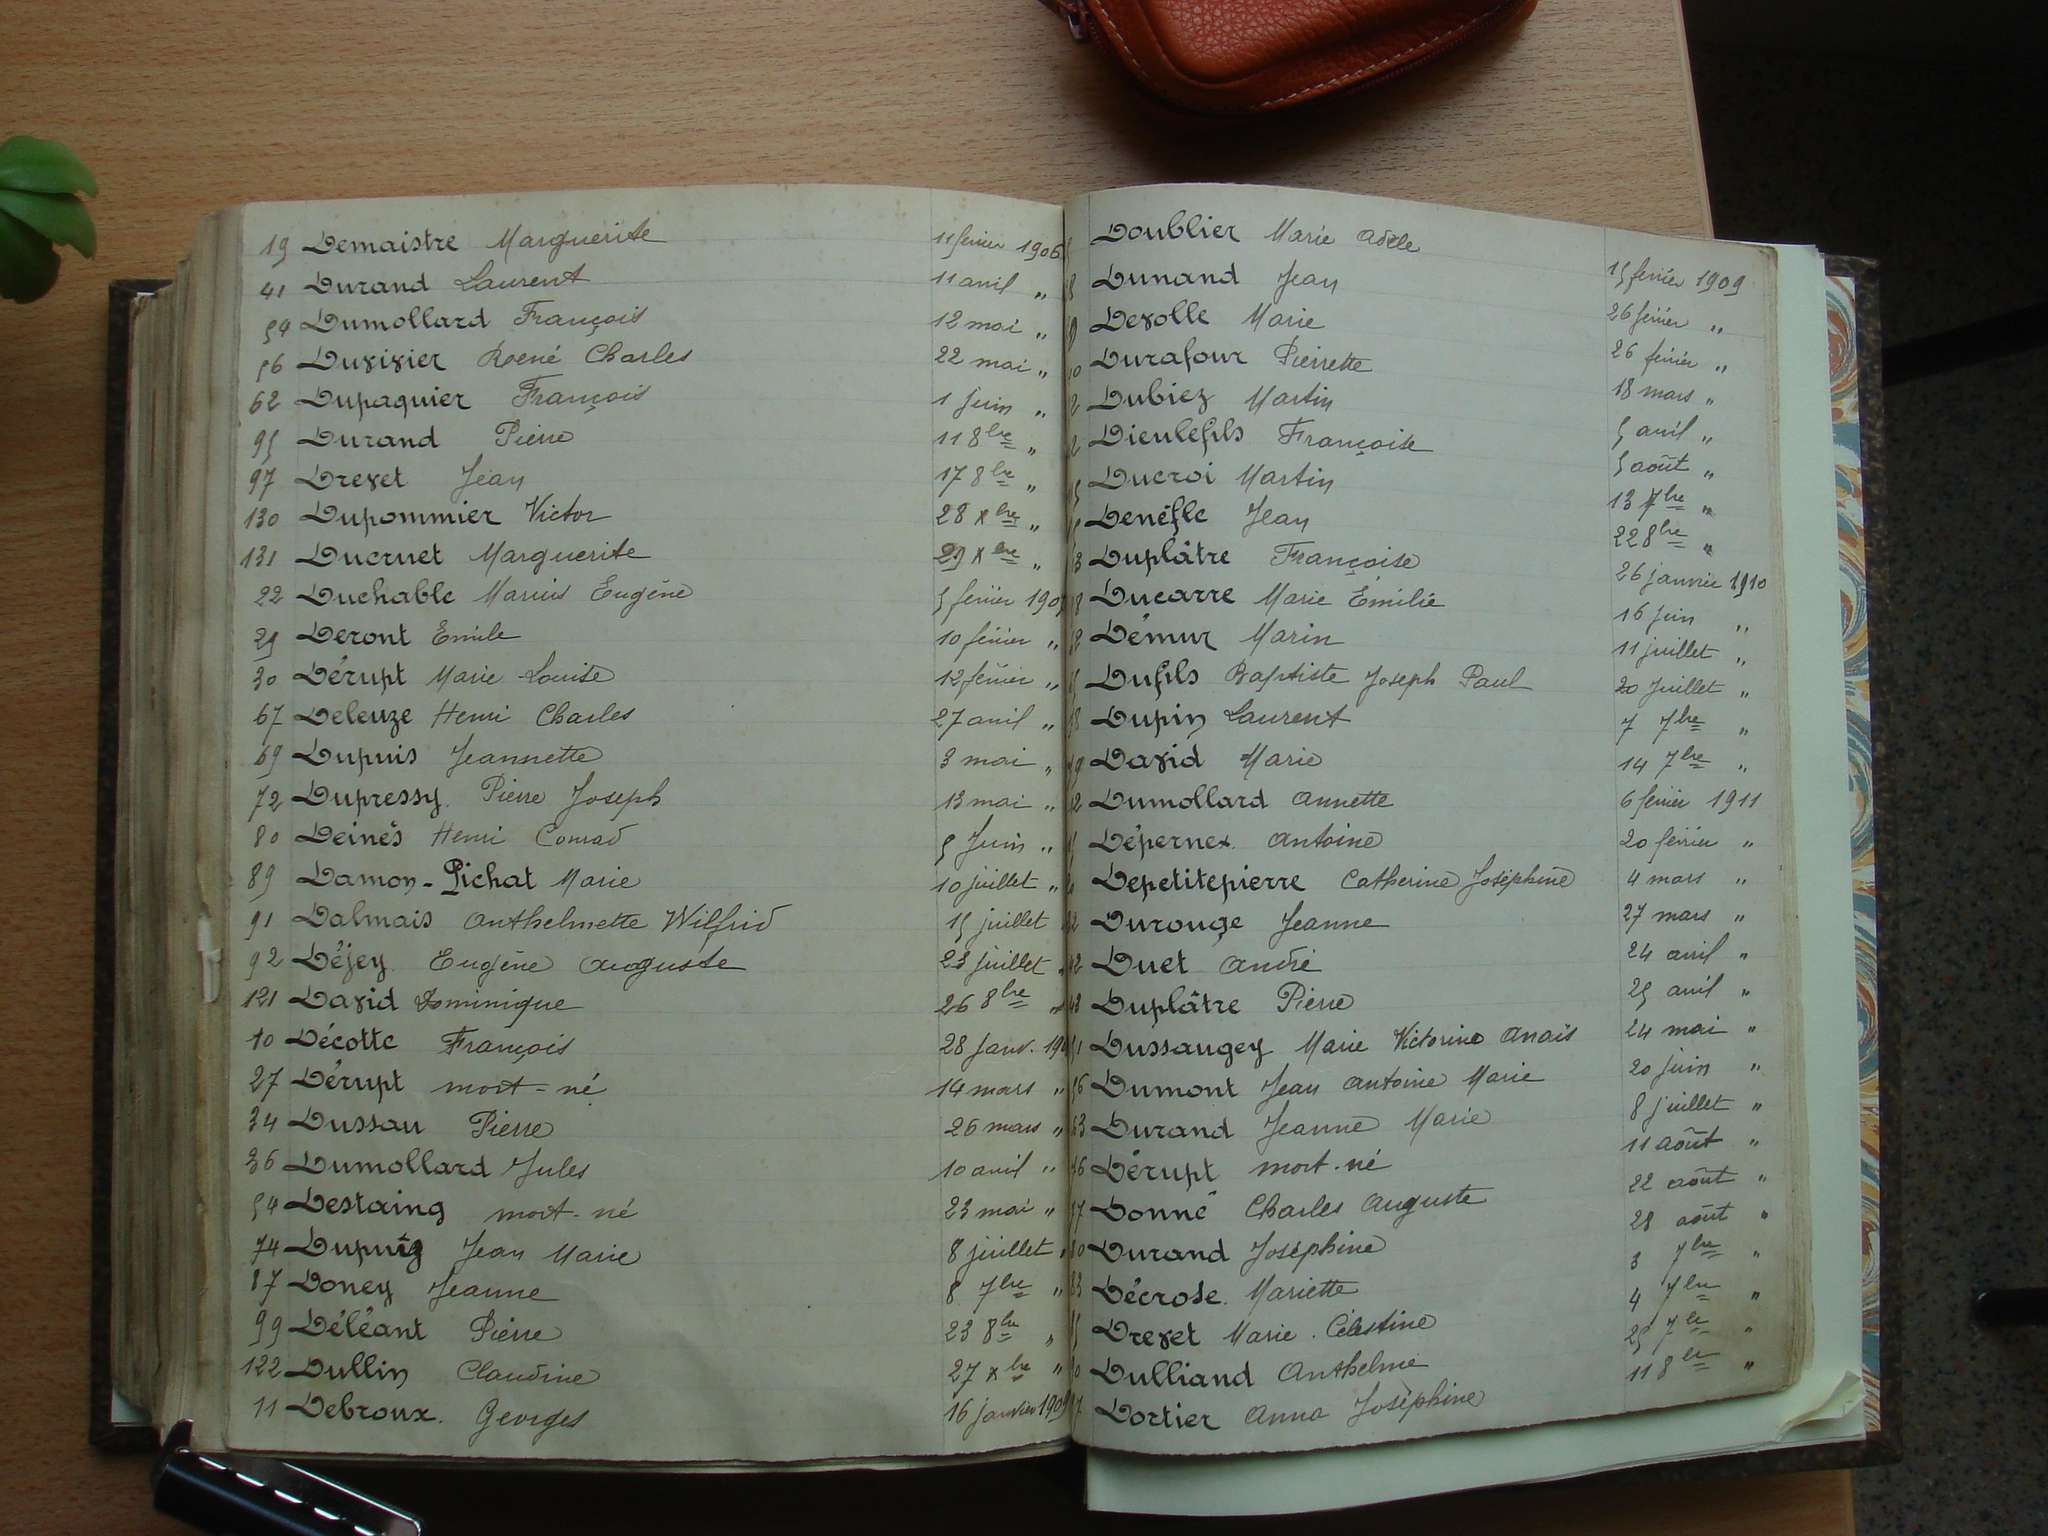 19 Demaistre Marguerite 11 février 1906
41 Durand Laurent 11 avril "
54 Dumollard François 12 mai "
56 Duvivier René Charles 22 mai "
62 Dupaquier François 1 juin "
95 Durand Pierre 11 8bre "
97 Drevet Jean 17 8bre "
130 Dupommier Victor 28 xbre "
131 Ducruet Marguerite 29 xbre "
22 Duchable Marius Eugène 5 février
29 Deront Emile 10 février "
30 Dérupt Marie Louise 12 février "
67 Deleuze Henri Charles 27 avril "
69 Dupuis Jeannette 3 mai "
72 Dupressy Pierre Joseph 13 mai "
80 Deinés Henri Conrad 5 Juin "
89 Damon-Pichat Marie 10 juillet "
91 Dalmais Anthelmette Wilfrid 15 juillet
92 Déjey Eugène Auguste 23 juillet "
121 David Dominique 26 8bre "
10 Décotte François 28 janv.
27 Dérupt mort-né 14 mars "
34 Dussau Pierre 26 mars "
36 Dumollard Jules 10 avril "
54 Destaing mort-né 23 mai "
74 Dupuig Jean Marie 8 juillet "
87 Doney Jeanne 8 7bre "
99 Déléant Pierre 23 8bre "
122 Dullin Claudine 27 xbre "
11 Debroux. Georges 16 janvier 1909
Doublier Marie Adèle 15 février 1909
Dunand Jean 26 février "
Devolle Marie 26 février "
Durafour Pierrette 18 mars "
Dubiez Martin 5 avril "
Dieulefils Françoise 5 août "
Ducroi Martin 13 7bre "
Denéfle Jean 22 8bre "
Duplâtre Françoise 26 janvier 1910
Ducarre Marie Émilie 16 juin "
Démur Marin 11 juillet "
Dufils Baptiste Joseph Paul 20 Juillet "
Dupin Laurent 7 7bre "
David Marie 14 7bre "
Dumollard Annette 6 février 1911
Dépernex Antoine 20 février "
Depetitepierre Catherine Joséphine 4 mars "
Durouge Jeanne 27 mars "
Duet André 24 avril "
Duplâtre Pierre 25 avril "
Dussaugey Marie Victorine Anaïs 24 mai "
Dumont Jean Antoine Marie 20 juin "
Durand Jeanne Marie 8 juillet "
Dérupt mort-né 11 août "
Donné Charles Auguste 22 août "
Durand Joséphine 28 août "
Décrose Mariette 3 7bre "
Drevet Marie Célestine 4 7bre "
Dulliand Anthelme 25 7bre "
Dortier Anna Joséphine 11 8bre "